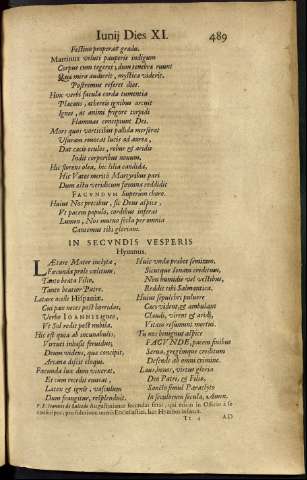 Iunij Dies XI. 489
Festino properat gradu.
Martinus veluti pauperis indigum
Corpus cum tegeret; dum tenebræ ruunt
mira audierit, mystica viderit.
Postremus referet dies.
Huic verbi facula corda tumentia
Placans, æthereis ignibus arcuit
Ignes, at animi frigore torpidi
Flammas concipiunt Dei.
Mors quos vorticibus pallida merserat
Usuram renocat lucis ad aurea,
Dat cæcis oculos, robur & aridis
Indit corporibus nouum.
Hic florens olea, hic filia candida,
His Vates meritò Martyribus pari
Dum actu veridicum famina reddidit
FACVNDVM Superûm choro.
Huius Nos precibus, sic Deus aspice,
Vt pacem populo, cordibus inferas
Lumen, Nos motus secla per omnia
Cantemus tibi gloriam.
IN SECVNDIS VESPERIS
Hymnus.
LÆtare Mater inclyta,
Fæcunda prole cælitum,
Tanto beata Filio,
Tanto beatior Patre.
Lætare tellus Hispaniæ,
Cui pax uenes post horridas,
Verbo IOANNIS ignes,
Vt Sol redit post nubila.
Hic est quia ab incunabulis,
Virtuti inhæsit firmiùs,
Deum videns, qua concipit,
Arcana discit eloqui.
Facunda lux dum vixerat,
Et cum recedit exarat,
Latens & ignis, vasculum
Dum frangitur, resplenduit.
Huic umbra probet semitam,
Sicuique donat credenum,
Neu humido vel vectibus,
Reddit tibi Salmantica.
Huius sepulchri puluere
Cæci vident & ambulant
Claudi, virent & aridi,
Vitam resumunt mortui.
Tu nos benignus aspice
FACVNDE, pacem finibus
Serua, gregemque creditum
Defende ab omni crimine.
Laus, honor, virtus gloria
Deo Patri, & Filio,
Sancto simul Paraclyto
In sæculorum sæcula, Amen.
P. F. Ioannes de Salcedo Augustinianus secundas fecit, qui etiam in Officio à se
Tt 4 AD